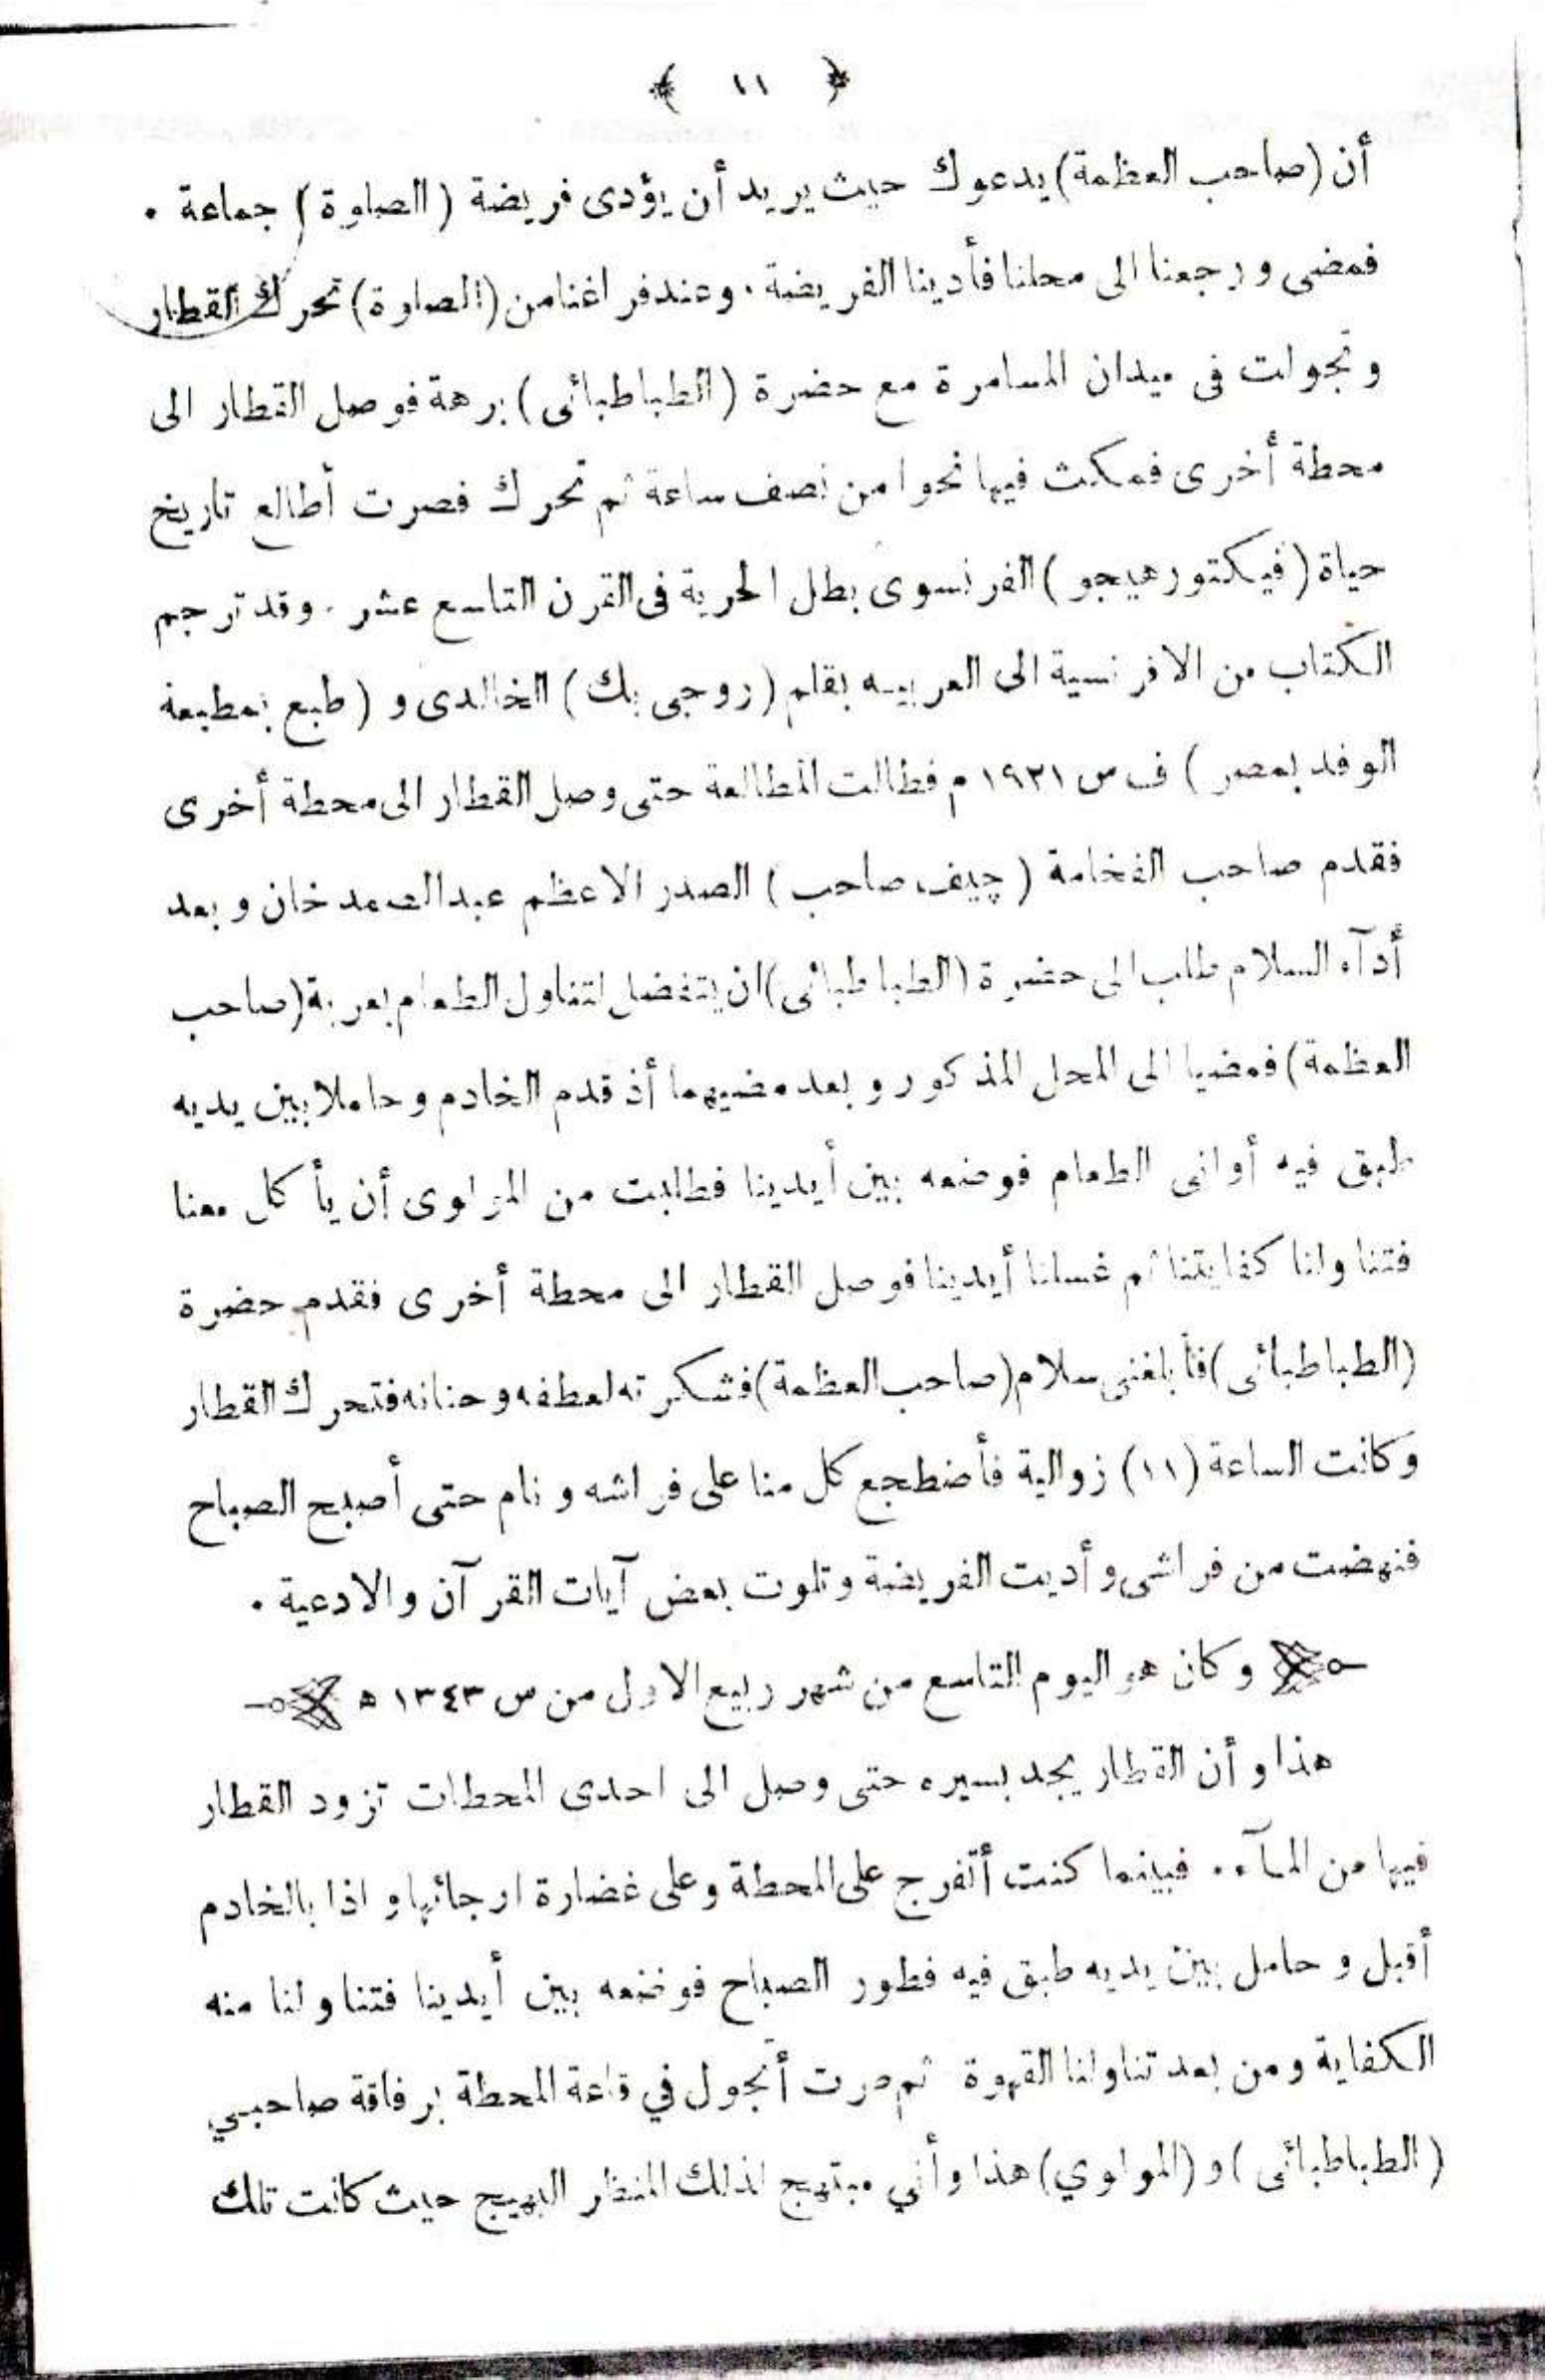 ﴿ ١١ ﴾
أن (صاحب العظمة) يدعوك حيث يريد أن يؤدى فريضة (الصلوة) جماعة .
فمضى ورجعنا الى محلنا فأدينا الفريضة . وعند فراغنا من (الصلوة) تحرك القطار
وتجولت فى ميدان المسامرة مع حضرة (الطباطبائى) برهة فوصل القطار الى
محطة أخرى فمكث فيها نحوا من نصف ساعة ثم تحرك فصرت أطالع تاريخ
حياة (فيكتور هيجو) الفرنسوى بطل الحرية فى القرن التاسع عشر . وقد ترجم
الكتاب من الافرنسية الى العربيه بقلم (روحى بك) الخالدى و (طبع بمطبعة
الوفد بمصر) ف س ١٩٢١ م فطالت المطالعة حتى وصل القطار الى محطة أخرى
فقدم صاحب الفخامة (چيف صاحب) الصدر الاعظم عبدالصمد خان وبعد
أدآء السلام طلب الى حضرة (الطباطبائى) ان يتفضل لتناول الطعام بعربة (صاحب
العظمة) فمضيا الى المحل المذكور وبعد مضيهما أذ قدم الخادم وحاملا بين يديه
طبق فيه أوانى الطعام فوضعه بين أيدينا فطلبت من المولوى أن يأكل معنا
فتناولنا كفايتنا ثم غسلنا أيدينا فوصل القطار الى محطة أخرى فقدم حضرة
(الطباطبائى) فأبلغنى سلام (صاحب العظمة) فشكرته لعطفه وحنانه فتحرك القطار
وكانت الساعة (١١) زوالية فأضطجع كل منا على فراشه ونام حتى أصبح الصباح
فنهضت من فراشى وأديت الفريضة وتلوت بعض آيات القرآن والادعية .
وكان هو اليوم التاسع من شهر ربيع الاول من س ١٣٤٣ ه
هذا وأن القطار يجد بسيره حتى وصل الى احدى المحطات تزود القطار
فيها من المآء . فبينما كنت أتفرج على المحطة وعلى غضارة ارجائها واذا بالخادم
أقبل وحامل بين يديه طبق فيه فطور الصباح فوضعه بين أيدينا فتناولنا منه
الكفاية ومن بعد تناولنا القهوة ثم صرت أتجول في قاعة المحطة برفاقة صاحبي
(الطباطبائى) و (المولوي) هذا وأني مبتهج لذلك المنظر البهيج حيث كانت تلك